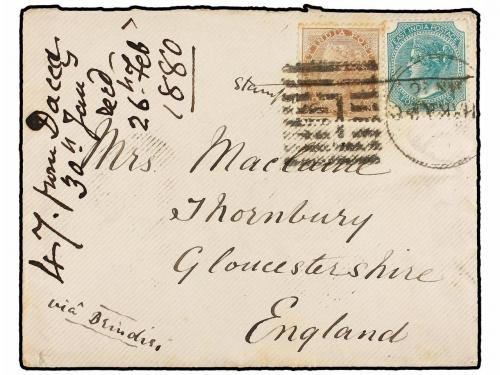 4 J. from Dacca
30th Jany
Recd
26th Feb
1880
INDIA POSTAGE
EAST INDIA POSTAGE
Stamp
Mrs. Maclaine
Thornbury
Gloucestershire
England
via Brindisi.